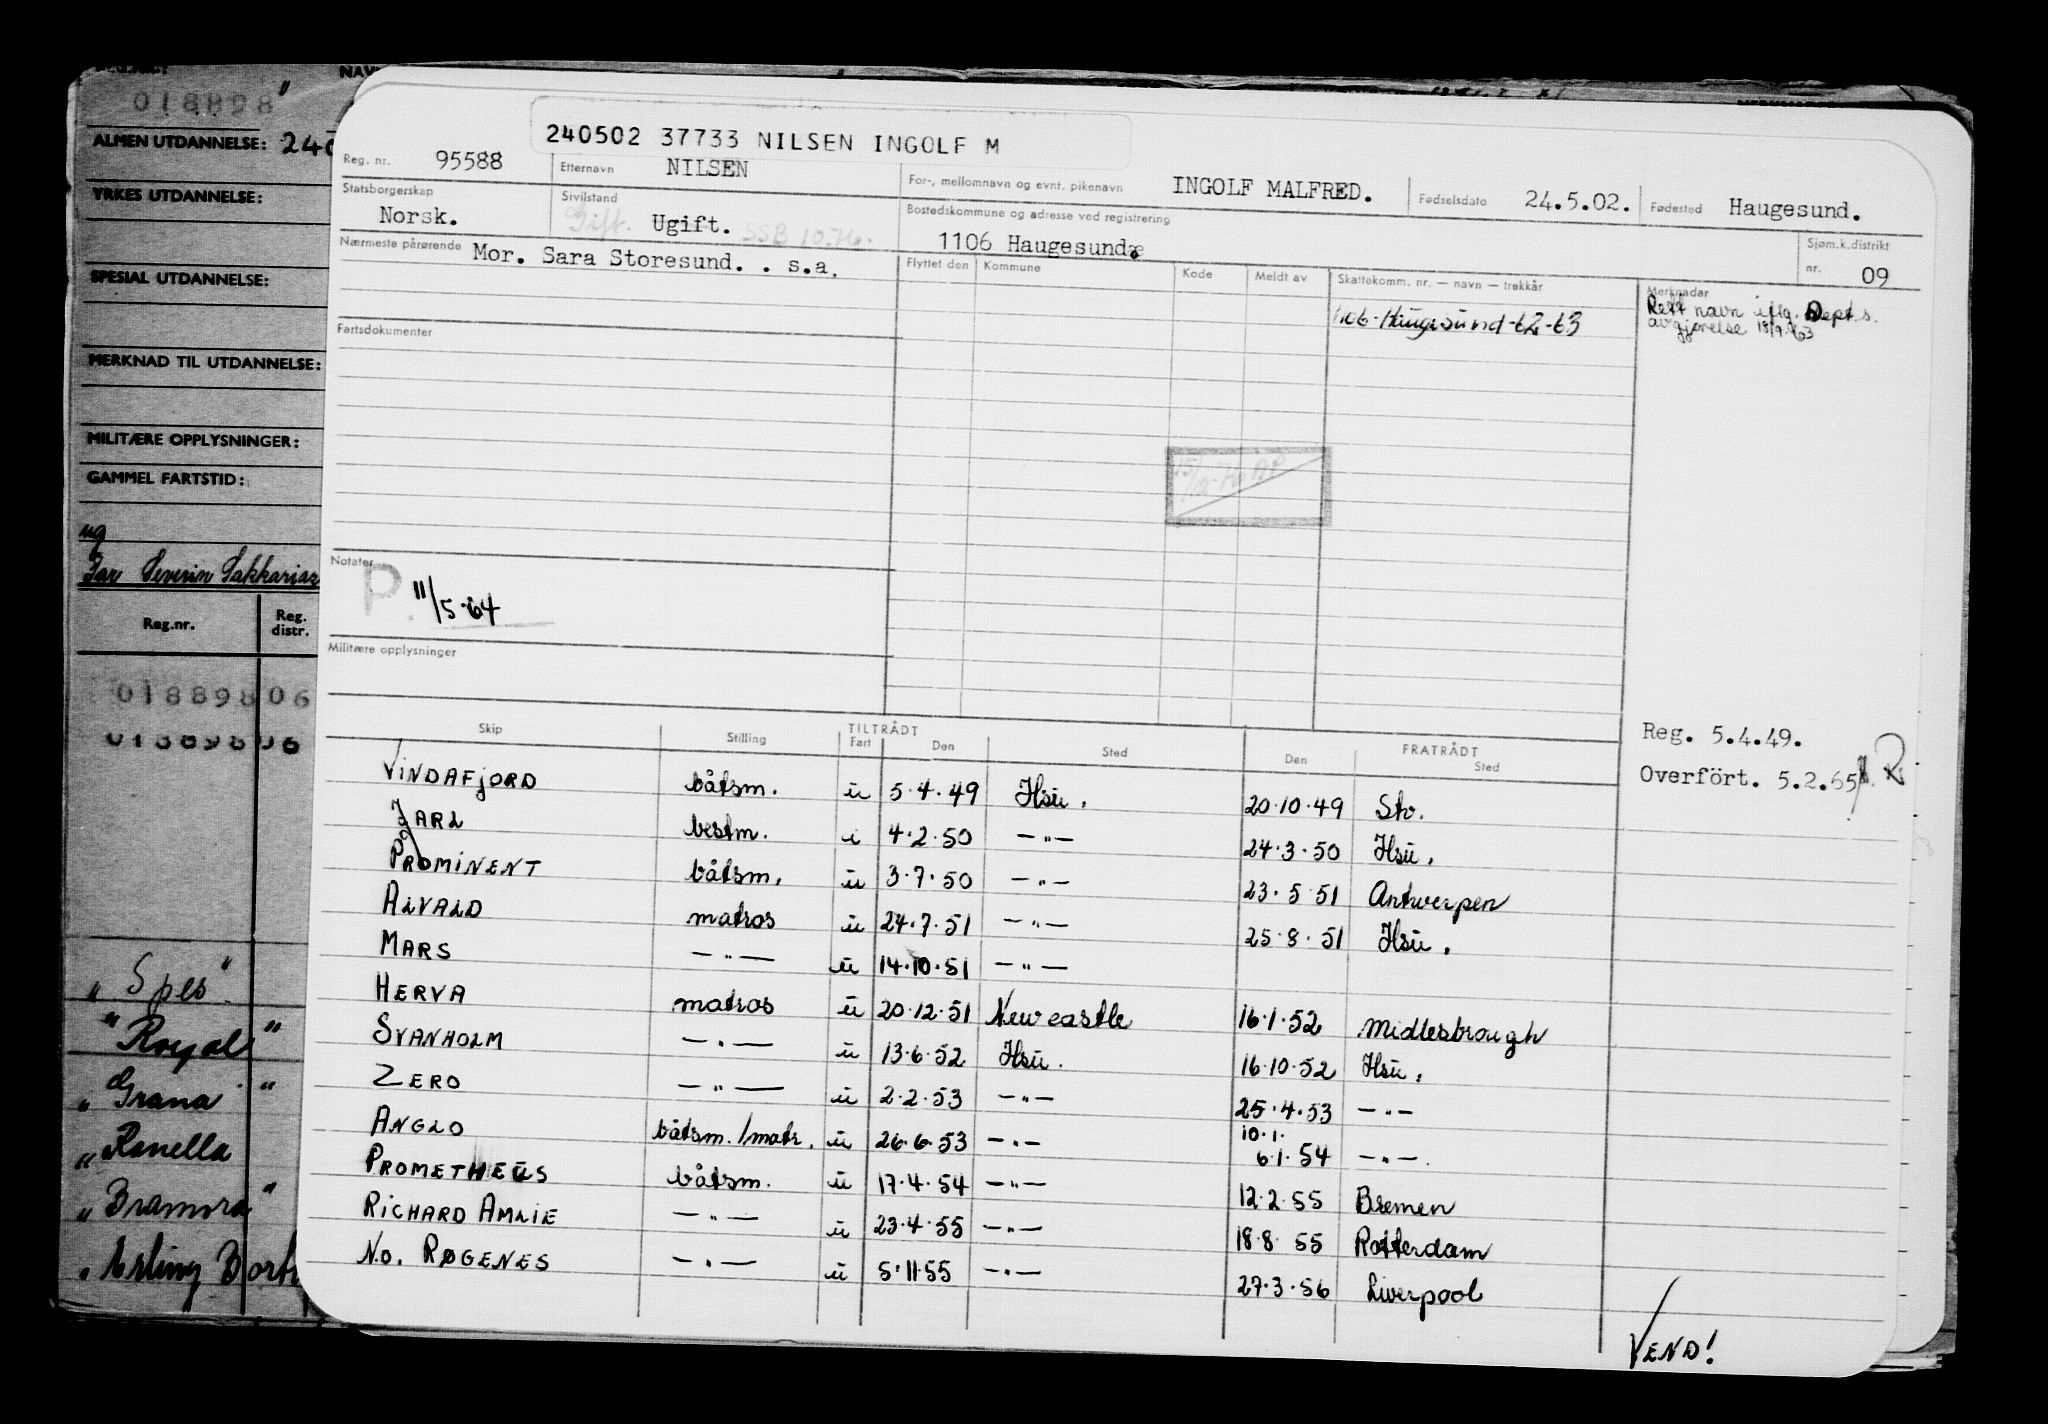 NAV
018898"
ALMEN UTDANNELSE: 240
YRKES UTDANNELSE:
SPESIAL UTDANNELSE:
MERKNAD TIL UTDANNELSE:
MILITÆRE OPPLYSNINGER:
GAMMEL FARTSTID:
ug
Far Severin Sakkarias
Reg.nr. Reg. distr.
018898 06
018898 06
"Spes"
"Royal"
"Grana"
"Ranella
"Bramora"
240502 37733 NILSEN INGOLF M
Reg. nr. 95588 Etternavn NILSEN For-, mellomnavn og evnt. pikenavn INGOLF MALFRED. Fødselsdato 24.5.02. Fødested Haugesund.
Statsborgerskap Norsk. Sivilstand Gift. Ugift. SSB 10.76. Bostedskommune og adresse ved registrering 1106 Haugesund. Sjøm.k.distrikt nr. 09
Nærmeste pårørende Mor. Sara Storesund. . s.a.
Flyttet den Kommune Kode Meldt av Skattekomm. nr. — navn — trekkår Merknader
1106-Haugesund-62-63
Rett navn iflg. Dept.s.
avgjørelse 18/9-63
Fartsdokumenter
Notater
P. 11/5-64
Militære opplysninger
Reg. 5.4.49.
Overført. 5.2.65
Skip Stilling TILTRÅDT Fart Den Sted FRATRÅDT Den Sted
VINDAFJORD båtsm. u 5.4.49 Hsu. 20.10.49 Stv.
JARL bestm. i 4.2.50 —"— 24.3.50 Hsu.
PROMINENT båtsm. u 3.7.50 —"— 23.5 51 Antwerpen
ALVALD matros u 24.7.51 —"— 25.8.51 Hsu.
MARS —"— u 14.10.51 —"—
HERVA matros u 20.12.51 Newcastle 16.1.52 Midlesbrough
SVANHOLM —"— u 13.6.52 Hsu. 16.10.52 Hsu.
ZERO —"— u 2.2.53 —"— 25.4.53 —"—
ANGLO båtsm./matr. u 26.6.53 —"— 10.1. 6.1.54 —"—.
PROMETHEUS båtsm. u 17.4.54 —"— 12.2.55 Bremen
RICHARD AMLIE —"— u 23.4.55 —"— 18.8 55 Rotterdam
N.O. RØGENES —"— u 5.11.55 —"— 27.3.56 Liverpool
VEND!